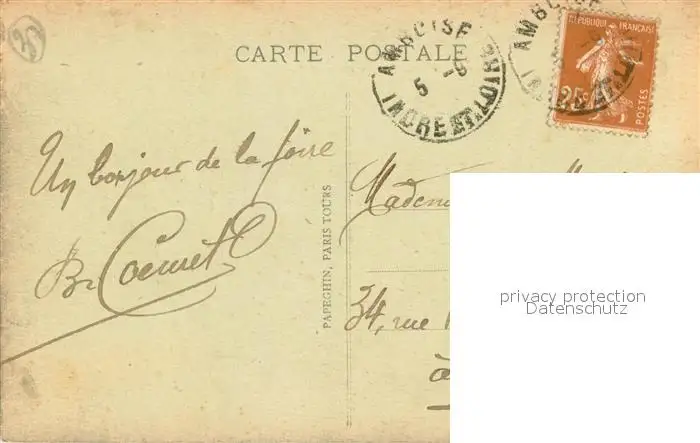 37
CARTE POSTALE
AMBOISE
5 -8
INDRE ET LOIRE
AMBOISE
REPUBLIQUE FRANÇAISE
25c
POSTES
Un bonjour de la foire
PAPEGHIN, PARIS TOURS
34, rue
à
privacy protection
Datenschutz